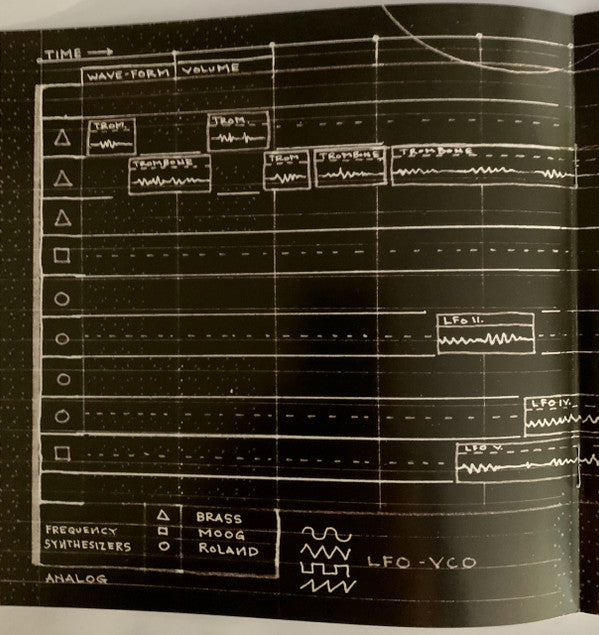 TIME
WAVE-FORM VOLUME
TROM. TROM.
TROMBONE TROM TROMBONE TROMBONE
LFO II.
LFO IV.
LFO V.
FREQUENCY
SYNTHESIZERS
BRASS
MOOG
ROLAND
LFO-VCO
ANALOG